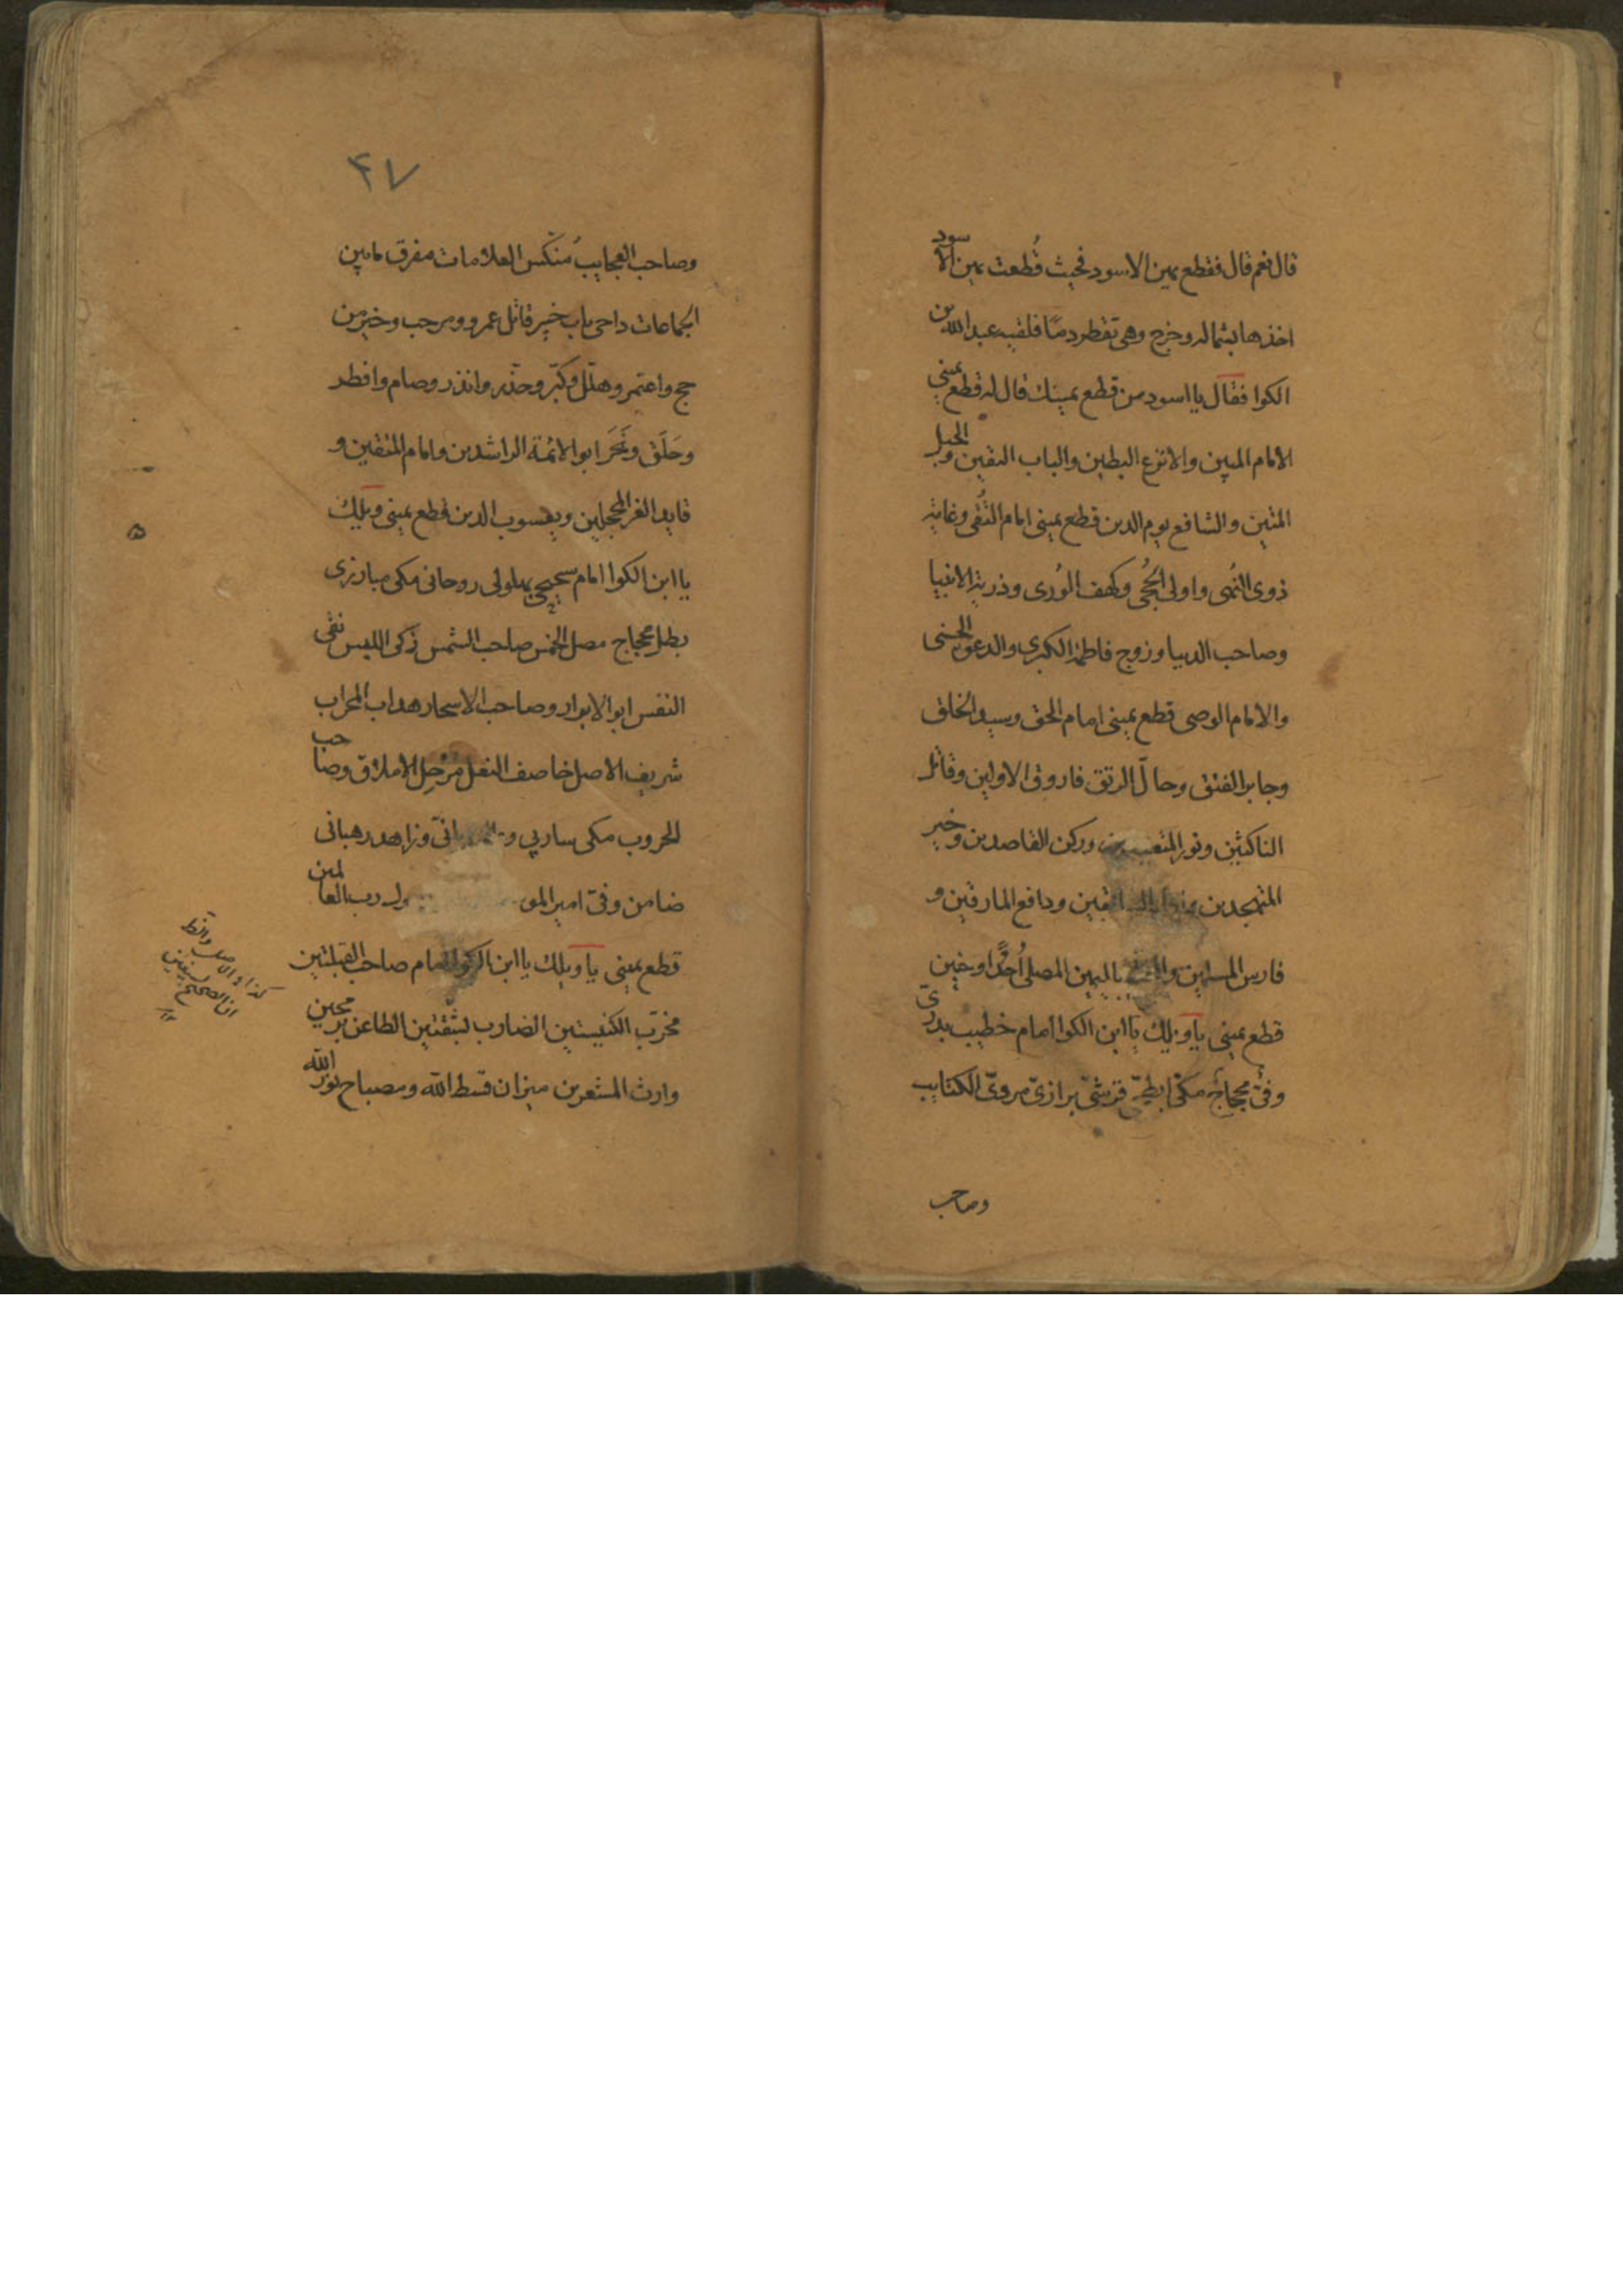 قال نعم قال فقطع يمين الاسود فحيث قُطعت يمين الاسود
اخذها بشماله وخرج وهى تقطر دمًا فلقيه عبدالله بن
الكوا فقال يا اسود من قطع يمينك قال له قطع يمينى
الامام المبين والانزع البطين والباب اليقين والحبل
المتين والشافع يوم الدين قطع يمينى امام التُقى وغاية
ذوى النُهى واولى الحُجى وكهف الوُرى وذرية الانبيا
وصاحب الدنيا وزوج فاطمة الكبرى والدعوة الحسنى
والامام الوصى قطع يمينى امام الحق وسيد الخلق
وجابر الفتق وحالّ الرتق فاروق الاولين وقاتل
الناكثين ونور وركن القاصدين وخير
المتهجدين ودافع المارقين و
فارس المسلمين باليمين المصلى اُحدًا وحنين
قطع يمينى ياويلك يا ابن الكوا امام خطيب بدرىّ
وفىّ محجاج مكىّ ابطحىّ قرشىّ الكتايب
وصاحب
٤٧
وصاحب العجايب منكّس العلامات مفرق مابين
الجماعات داحى باب خيبر قاتل عمرو ومرحب وخير من
حج واعتمر وهلّل وكبّر وحذّر وانذر وصام وافطر
وحَلَق ونَحَرَ ابو الائمة الراشدين وامام المتقين و
قايد الغر المحجلين ويعسوب الدين قطع يمينى ويلك
يا ابن الكوا امام بهلولى روحانى مكى مبارزى
بطل عجاج مصل الخمس صاحب الشمس زكى اللبس نقى
النفس ابو الابرار وصاحب الاسحار المحراب
شريف الاصل خاصف النعل الاملاق وصاحب
الحروب مكى وزاهد رهبانى
ضامن وفىّ امير رب العالمين
قطع يمينى ياويلك يا ابن الكوا امام صاحب القبلتين
مخرّب الكنيستين الضارب الطاعن برمحين
وارث المشعرين ميزان قسط الله ومصباح نور الله
كذا والاصل واظن
ان الصحيح بسيفين